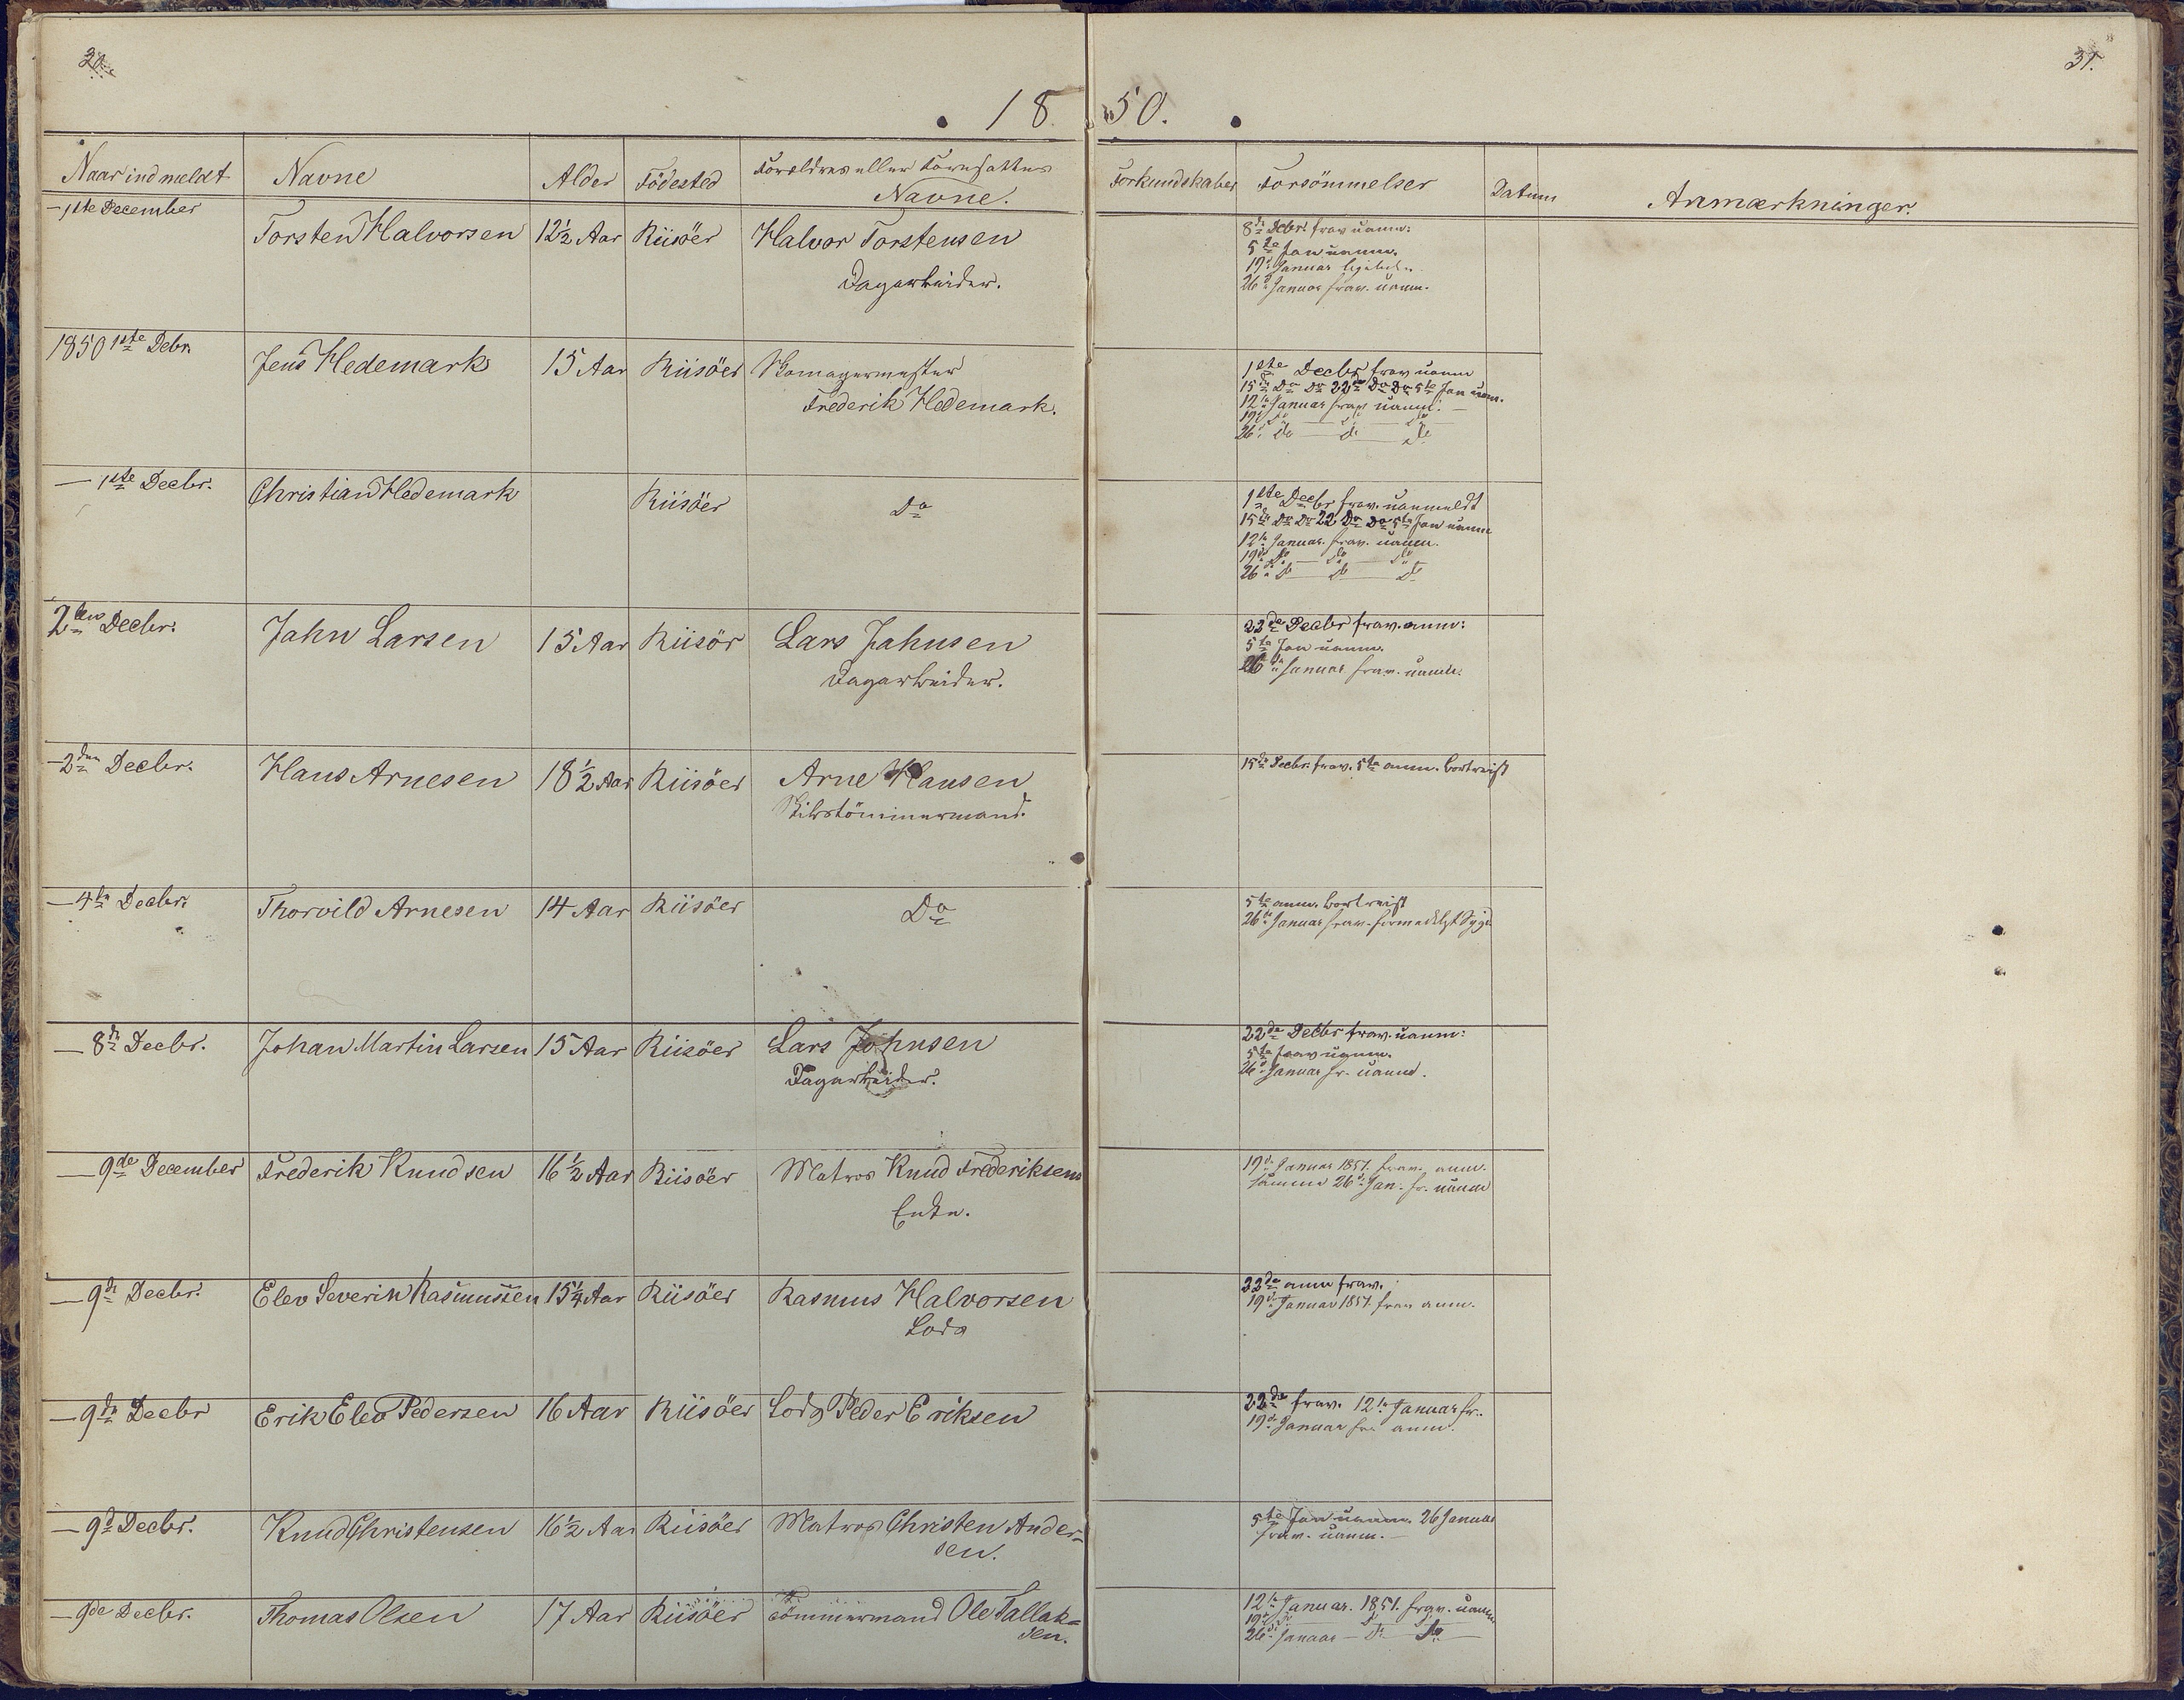 31.
1850.
Naar indmeldt Navne Alder Födested Forældres eller Foresattes Navne. Forkundskaber Forsömmelser Datum Anmærkninger.
1ste December Torsten Halvorsen 12½ Aar Riisöer Halvor Torstensen
Dagarbeider.
8de Decbr. frav uanm:
5te Jan uanm.
19de Januar
26de Januar frav. uanm.
1850 1ste Debr. Jens Hedemark 15 Aar Riisöer Skomagermester
Frederik Hedemark.
1ste Decbr frav uanm
15de Do Do 22de Do Do 5te Jan uanm.
12te Januar frav uanm. —
19de Do Do Do
26de Do — Do Do
— 1ste Decbr. Christian Hedemark Riisöer Do
1ste Decbr frav. uanmeldt
15de Do Do 22 Do Do 5te Jan uanm
12te Januar. frav. uanm.
19de Do — Do — Do
26de Do Do Do
2den Decbr. Jahn Larsen 15 Aar Riisör Lars Jahnsen
Dagarbeider.
22de Decbr frav. anm:
5te Jan uanm.
26de Januar frav. uanm.
— 2den Decbr. Hans Arnesen 18½ Aar Riisöer Arne Hansen
Skibstömmermand.
15de Decbr. frav. 5te anm. bortreist
— 4de Decbr. Thorvild Arnesen 14 Aar Riisöer Do
5te anm. bortreist
26de Januar frav. formedelst Sygd
— 8de Decbr. Johan Martin Larsen 15 Aar Riisöer Lars Johnsen
Dagarbeider.
22de Decbr frav. uanm:
5te frav uanm.
26de Januar fr. uanm.
— 9de December Frederik Knudsen 16½ Aar Riisöer Matros Knud Frederiksens
Enke.
19de Januar 1851. frav. anm.
samme 26de Jan. fr. uanm
— 9de Decbr. Elev Severin Rasmussen 15¼ Aar Riisöer Rasmus Halvorsen
Lods
22de anm frav.
19de Januar 1851. frav anm.
— 9de Decbr Erik Elev Pedersen 16 Aar Riisöer Lods Peder Eriksen
22de frav. 12te Januar fr.
19de Januar fr. anm.
— 9de Decbr. Knud Christensen 16½ Aar Riisöer Matros Christen Ander-
sen.
5te Jan uanm. 26 Januar
frav. uanm. —
— 9de Decbr. Thomas Olsen 17 Aar Riisöer Tömmermand Ole Tallak=
sen.
12te Januar. 1851. frav. uanm.
19de Do Do Do
26de Januar — Do Do